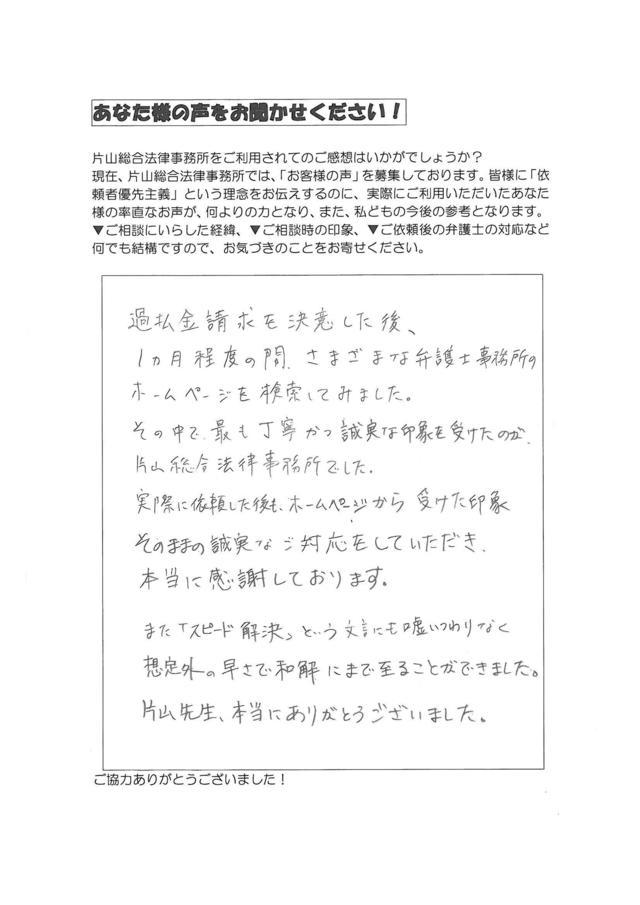 あなた様の声をお聞かせください！
片山総合法律事務所をご利用されてのご感想はいかがでしょうか？
現在、片山総合法律事務所では、「お客様の声」を募集しております。皆様に「依
頼者優先主義」という理念をお伝えするのに、実際にご利用いただいたあなた
様の率直なお声が、何よりの力となり、また、私どもの今後の参考となります。
▼ご相談にいらした経緯、▼ご相談時の印象、▼ご依頼後の弁護士の対応など
何でも結構ですので、お気づきのことをお寄せください。
過払金請求を決意した後、
1ヵ月程度の間、さまざまな弁護士事務所の
ホームページを検索してみました。
その中で、最も丁寧かつ誠実な印象を受けたのが、
片山総合法律事務所でした。
実際に依頼した後も、ホームページから受けた印象
そのままの誠実なご対応をしていただき、
本当に感謝しております。
また「スピード解決」という文言にも嘘いつわりなく
想定外の早さで和解にまで至ることができました。
片山先生、本当にありがとうございました。
ご協力ありがとうございました！